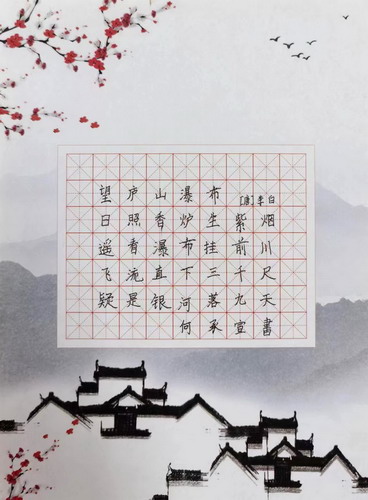 望庐山瀑布
[唐]李白
日照香炉生紫烟
遥看瀑布挂前川
飞流直下三千尺
疑是银河落九天
何承宣书